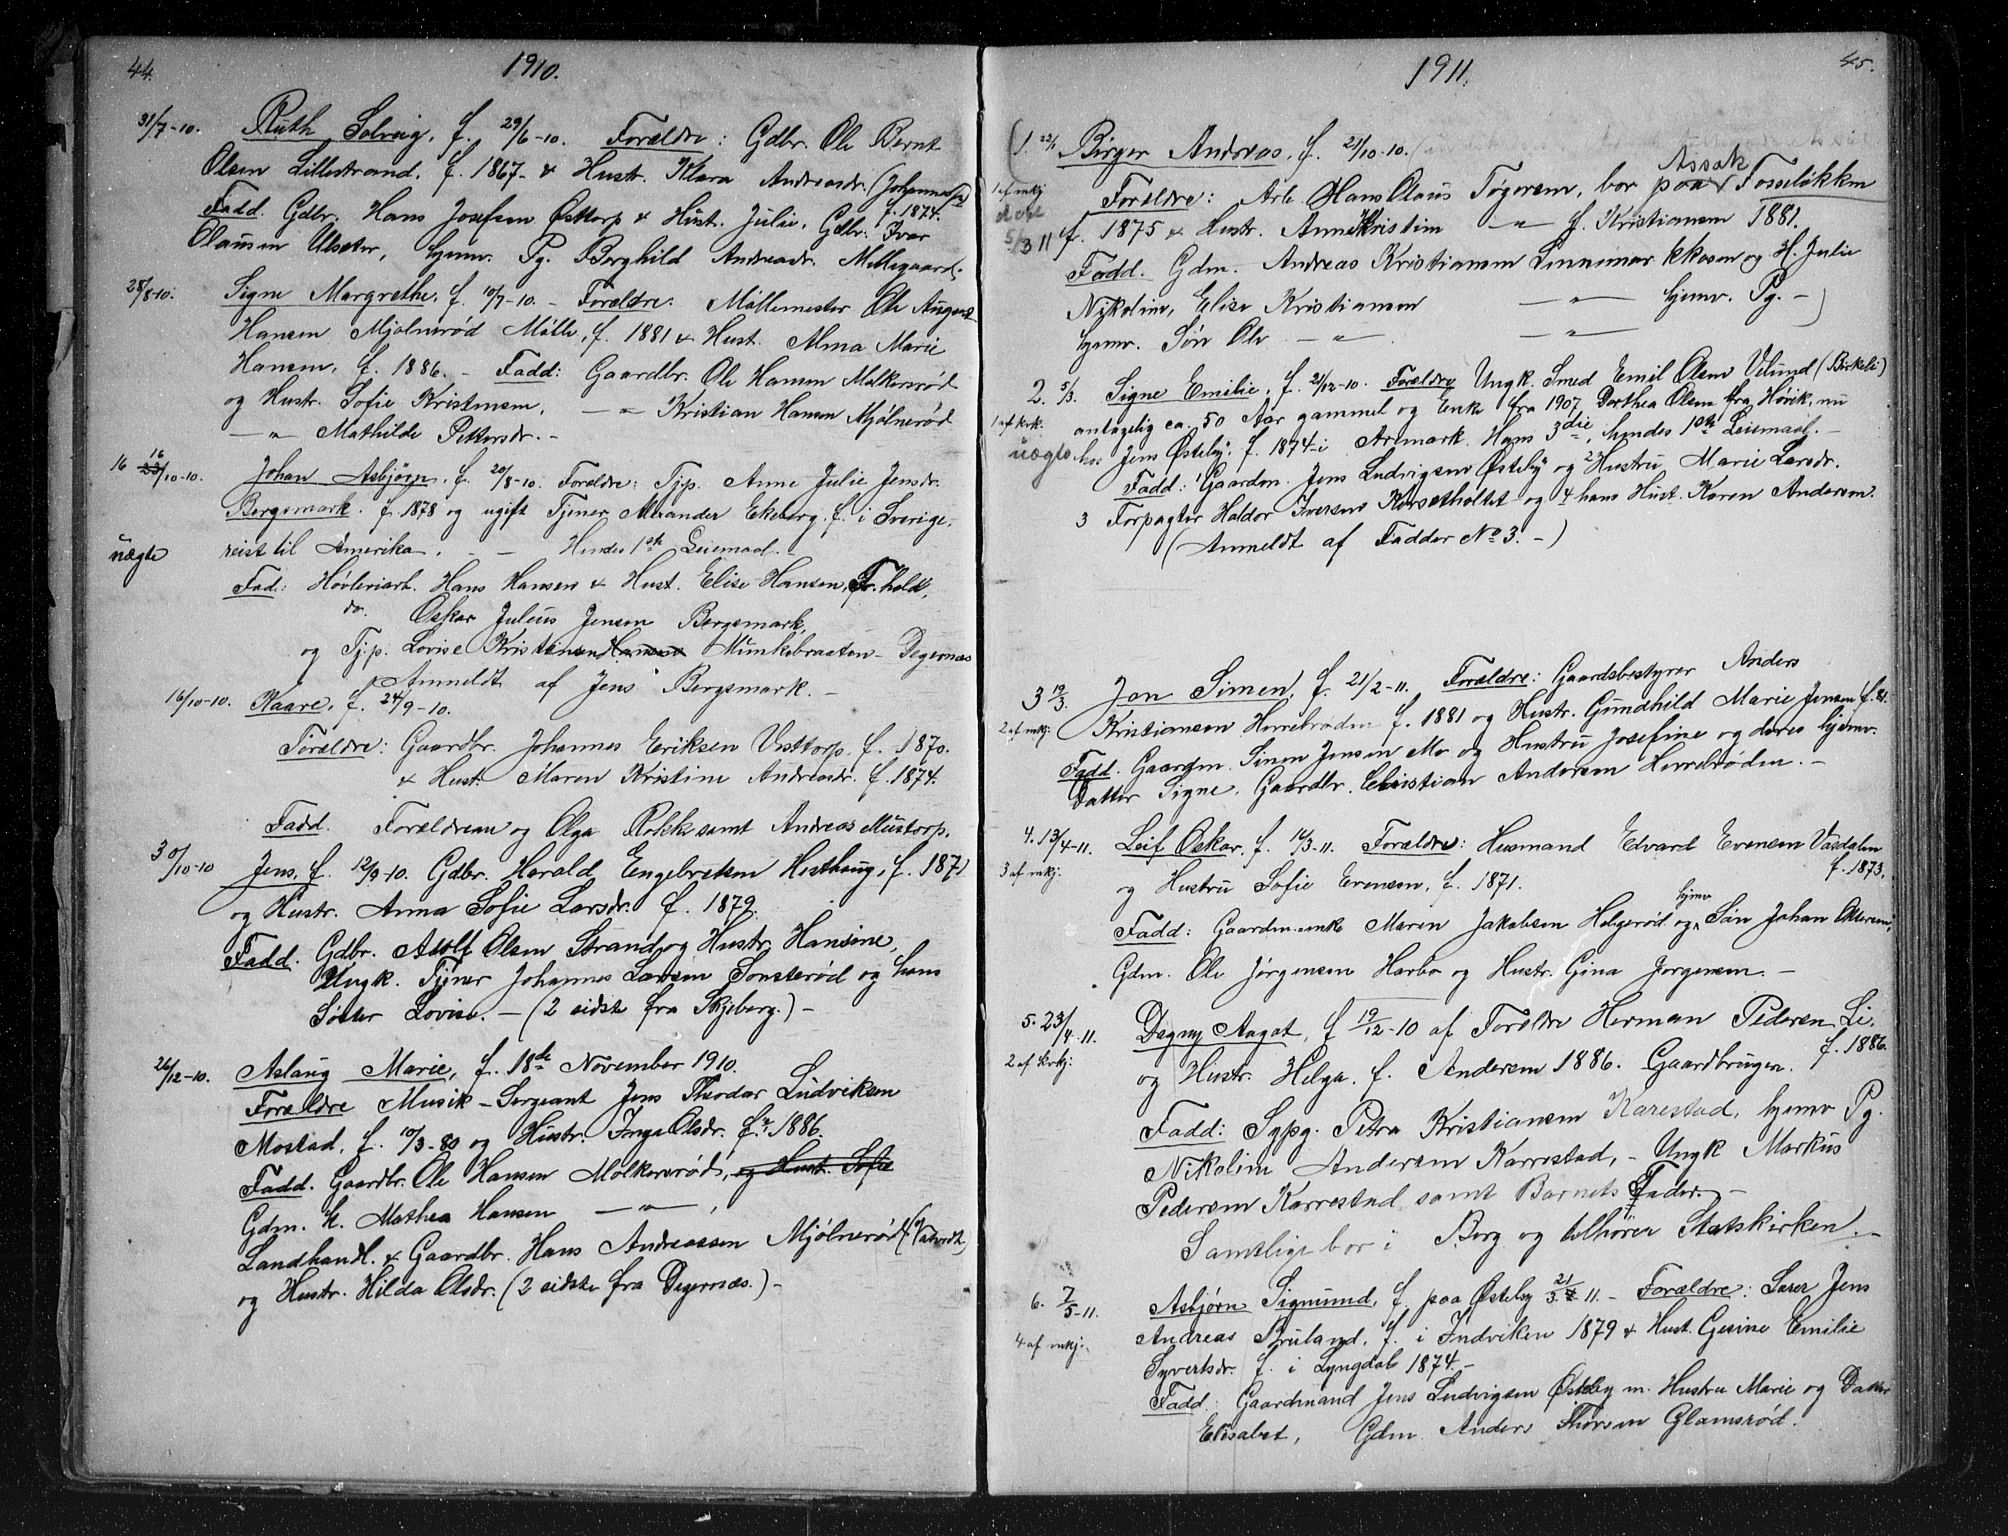 44. 1910.
31/7-10. Ruth Solveig, f. 29/6-10. Forældre: Gdbr. Ole Bernt
Olsen Lillestrand, f. 1867- & Hustr. Klara Andreasdr. (Johannes
f. 1874.
Fadd. Gdbr. Hans Josefsen Østtorp & Hustr. Julie, Gdbr. Ivar
Olausen Ulseter, hjemv. Pg. Borghild Andreasdr. Mellegaard.
28/8-10. Signe Margrethe, f. 10/7-10. - Forældre: Møllemester Ole August
Hansen Mjølnerød Mølle, f. 1881 & Hust. Alma Marie
Hansen, f. 1886. - Fadd: Gaardbr. Ole Hansen Molkersrød
og Hustr. Sofie Kristensen, - " - Kristian Hansen Mjølnerød
- " - Mathilde Pettersdr. -
16 16/10-10. Johan Asbjørn, f. 20/8-10. Forældre: Tjp. Anne Julie Jensdr.
Bergsmark. f. 1878 og ugift Tjener Alexander Ekeberg. f. i Sverige,
uægte reist til Amerika. - - Hendes 1ste Leiemaal. -
Fad: Høvleriarb. Hans Hansen & Hust. Elise Hansen, Fr.hald,
do. Oskar Julius Jensen Bergsmark,
og Tj.p. Lovise Kristiansen Hansen Munkebraaten - Degernæs
Anmeldt af Jens Bergsmark. -
16/10-10. Kaare, f. 24/9-10.
Forældre: Gaardbr. Johannes Eriksen Vesttorp, f. 1870.
& Hust. Maren Kristine Andreasdr. f. 1874.
Fadd. Forældrene og Olga Rokke samt Andreas Mustorp.
30/10-10 Jens, f. 12/9-10. Gdbr. Harald Engebretsen Hesthaug, f. 1871
og Hustr. Anna Sofie Larsdr. f. 1879.
Fadd. Gdbr. Adolf Olsen Strand og Hustr. Hansine,
Ungk. Tjener Johannes Larsen Sonsterød og hans
Søster Lovise. - (2 sidste fra Skjeberg.) -
26/12-10. Aslaug Marie, f. 18de November 1910.
Forældre Musik-Sergeant Jens Theodor Ludviksen
Mostad, f. 10/3-80 og Hustr. Inga Olsdr. f. 1886.
Fadd. Gaardbr. Ole Hansen Molkersrød, og Hust. Sofie
Gdm. k. Mathea Hansen - " - ,
Landhandl. & Gaardbr. Hans Andreassen Mjølnerød
og Hustr. Hilda Olsdr. (2 sidste fra Degernæs.) -
1911. 45.
1. 22/1 Birger Andreas, f. 21/10-10.
1 af mkj. Forældre: Arb. Hans Olaus Tøgersen, bor paa Assak Fosseløkken
5/3 11 f. 1875 & Hustr. Anne Kristine - " - f. Kristiansen 1881.
Fadd. Gdm. Andreas Kristiansen Linnemarkkosen og H. Julie
Nikoline, Elise Kristiansen - " - hjemv. Pg. -
hjemv. Søn Ole - " - - " -
2. 5/3. Signe Emilie, f. 21/12-10. Forældre Ungk. Smed Emil Olsen Velund (Birkeli)
1 af kvk. antagelig ca. 50 Aar gammel og Enke fra 1907 Dorthea Olsen fra Høvik, nu
uægte hos Jens Østeby. f. 1874 i Aremark. Hans 3die, hendes 1ste Leiemaal. -
Fadd: 1 Gaardm. Jens Ludvigsen Østeby og 2 Hustru Marie Larsdr.
3 Forpagter Haldor Iversen Korsetholtet og 4 hans Hust. Karen Andersen.
(Anmeldt af Fadder No 3. -)
3 19/3. Jon Simen, f. 21/2-11. Forældre: Gaardsbestyrer Anders
2 af mkj. Kristiansen Herrebrøden f. 1881 og Hustr. Gundhild Marie Jensen f. 81.
Fadd. Gaardm. Simen Jensen Mo og Hustru Josefine og deres hjemv.
Datter Signe, Gaardbr. Christian Andersen Herrebrøden. -
4. 13/4-11. Leif Oskar, f. 14/3-11. Forældre: Husmand Edvard Evensen Vasdalen
f. 1873.
3 af mkj. og Hustru Sofie Evensen, f. 1871.
Fadd: Gaardm.enke Maren Jakobsen Helgerød og hjemv Søn Johan Ottersen,
Gdm. Ole Jørgensen Harbo og Hustr. Gina Jørgensen. -
5. 23/4-11. Dagny Aagot, f 19/12-10 af Forældre Herman Pedersen Li,
f. 1886.
2 af kvkj: og Hustr. Helga. f. Andersen 1886. Gaardbrugen.
Fadd: Sypg. Petra Kristiansen Karestad, hjemv Pg.
Nikoline Andersen Karrestad, - Ungk Markus
Pedersen Karrestad samt Barnets Fader. -
Samtlige bor i Borg og tilhører Statskirken. -
6. 7/5-11. Asbjørn Sigmund, f. paa Østeby 21/3 11. - Forældre: Lærer Jens
4 af mkj. Andreas Fruland, f. i Indviken 1879 & Hust. Gesine Emilie
Syvertsdr. f. i Lyngdal 1874. -
Fadd: Gaardmand Jens Ludvigsen Østeby m. Hustru Marie og Datter
Elisabet, Gdm. Anders Thoresen Glamsrød.